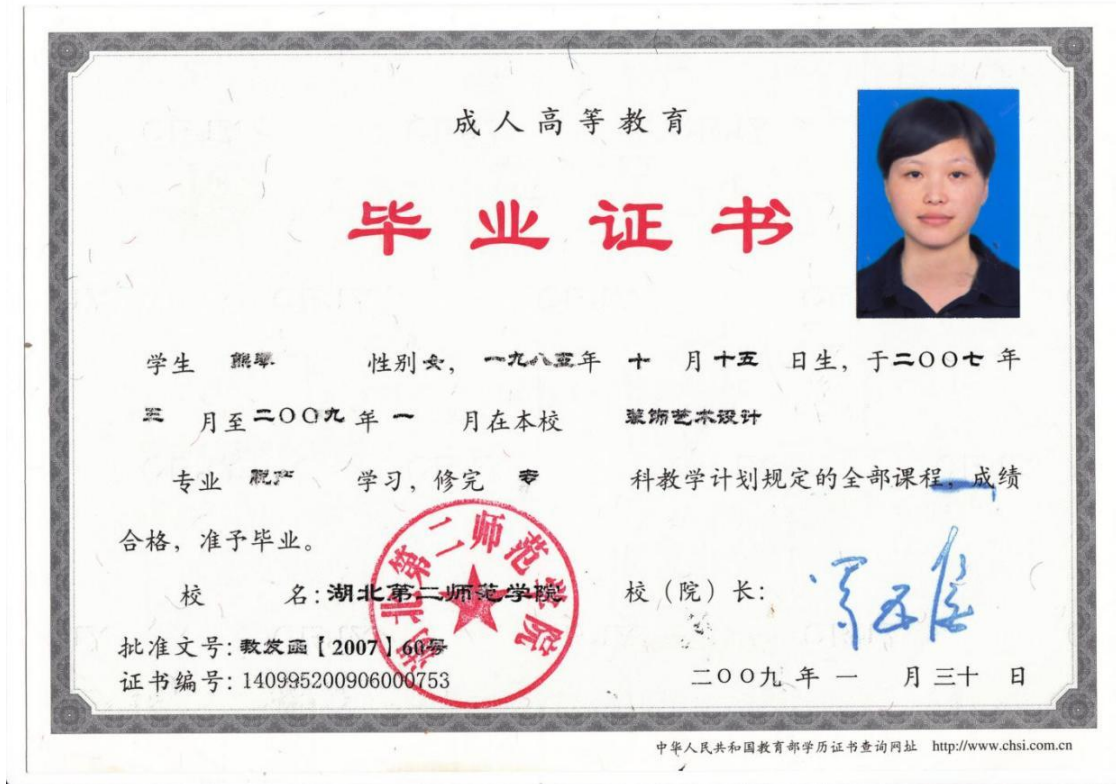 成人高等教育
毕业证书
学生 熊琴 性别女，一九八五年 十 月十五 日生，于二〇〇七 年
三 月至二〇〇九 年 一 月在本校 装饰艺术设计
专业 脱产 学习，修完 专 科教学计划规定的全部课程，成绩
合格，准予毕业。
湖北第二师范学院
校 名：湖北第二师范学院 校（院）长：
批准文号：教发函【2007】60号
证书编号：140995200906000753 二〇〇九 年 一 月 三十 日
中华人民共和国教育部学历证书查询网址 http://www.chsi.com.cn